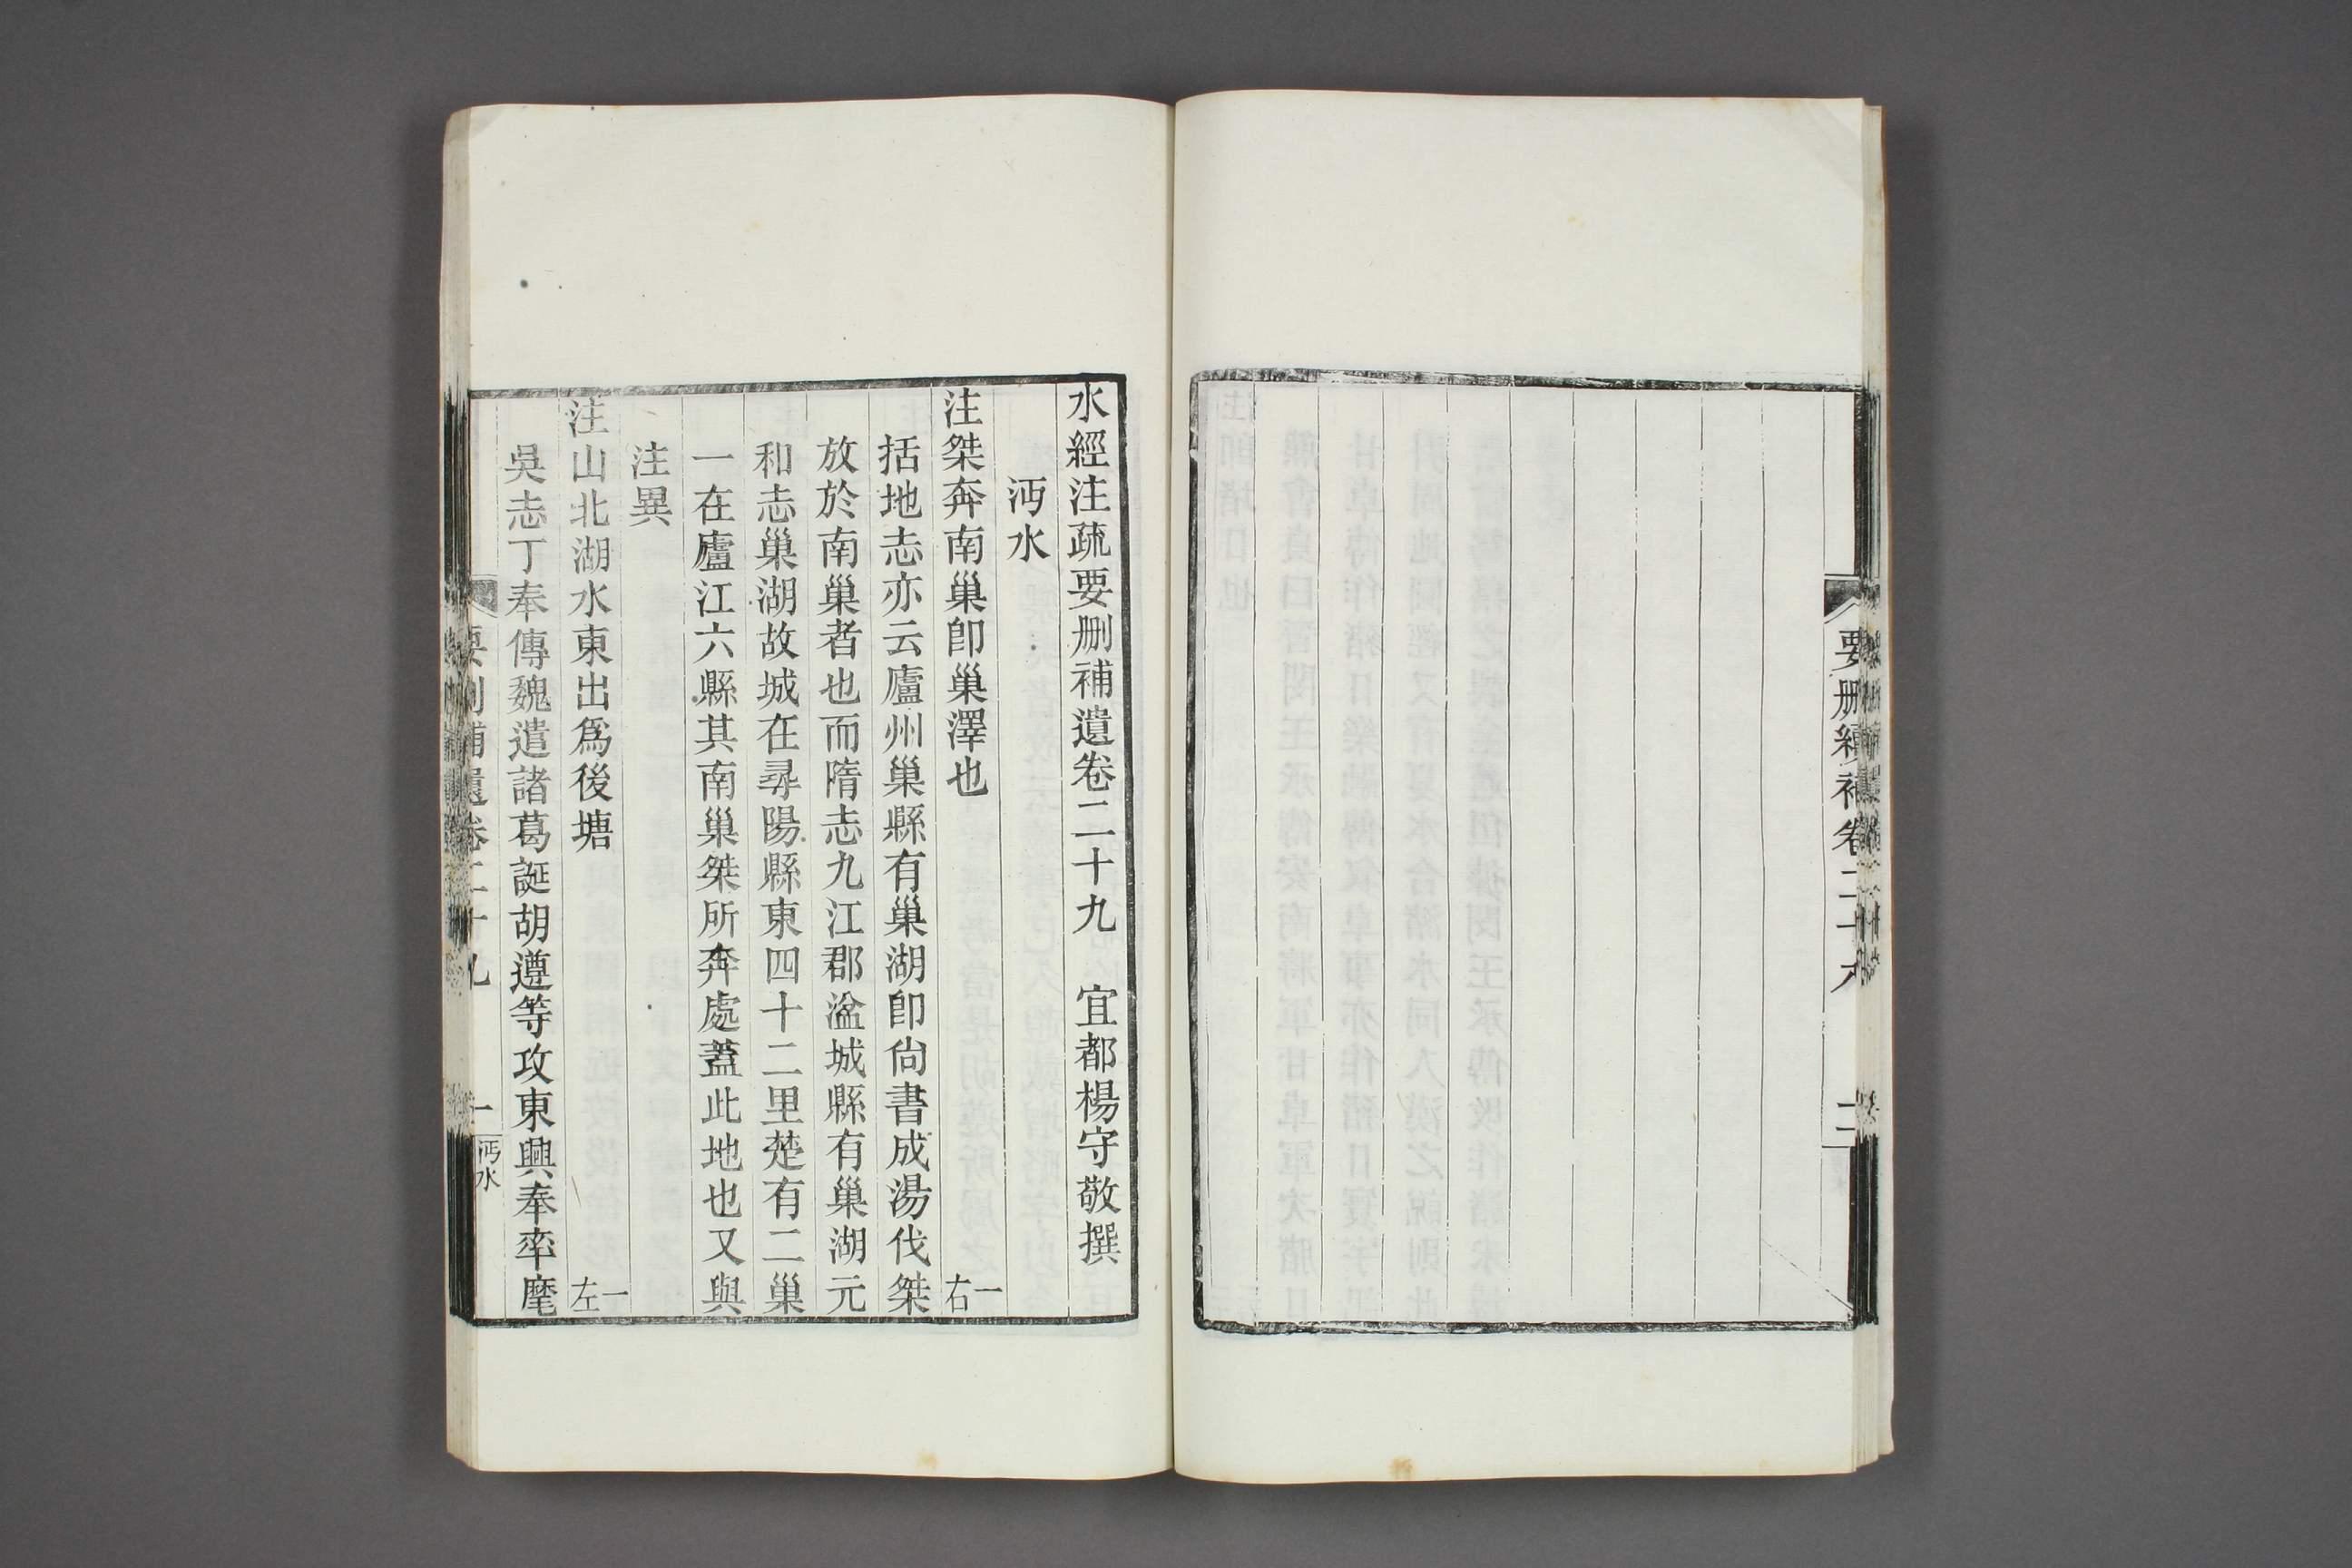 要删續補卷二十八
二
水經注疏要刪補遺卷二十九　宜都楊守敬撰
沔水
注桀奔南巢卽巢澤也　一右
括地志亦云廬州巢縣有巢湖卽尙書成湯伐桀
放於南巢者也而隋志九江郡湓城縣有巢湖元
和志巢湖故城在尋陽縣東四十二里楚有二巢
一在廬江六縣其南巢桀所奔處蓋此地也又與
注異
注山北湖水東出爲後塘　一左
吳志丁奉傳魏遣諸葛誕胡遵等攻東興奉率麾
要刪補遺卷二十九
一
沔水